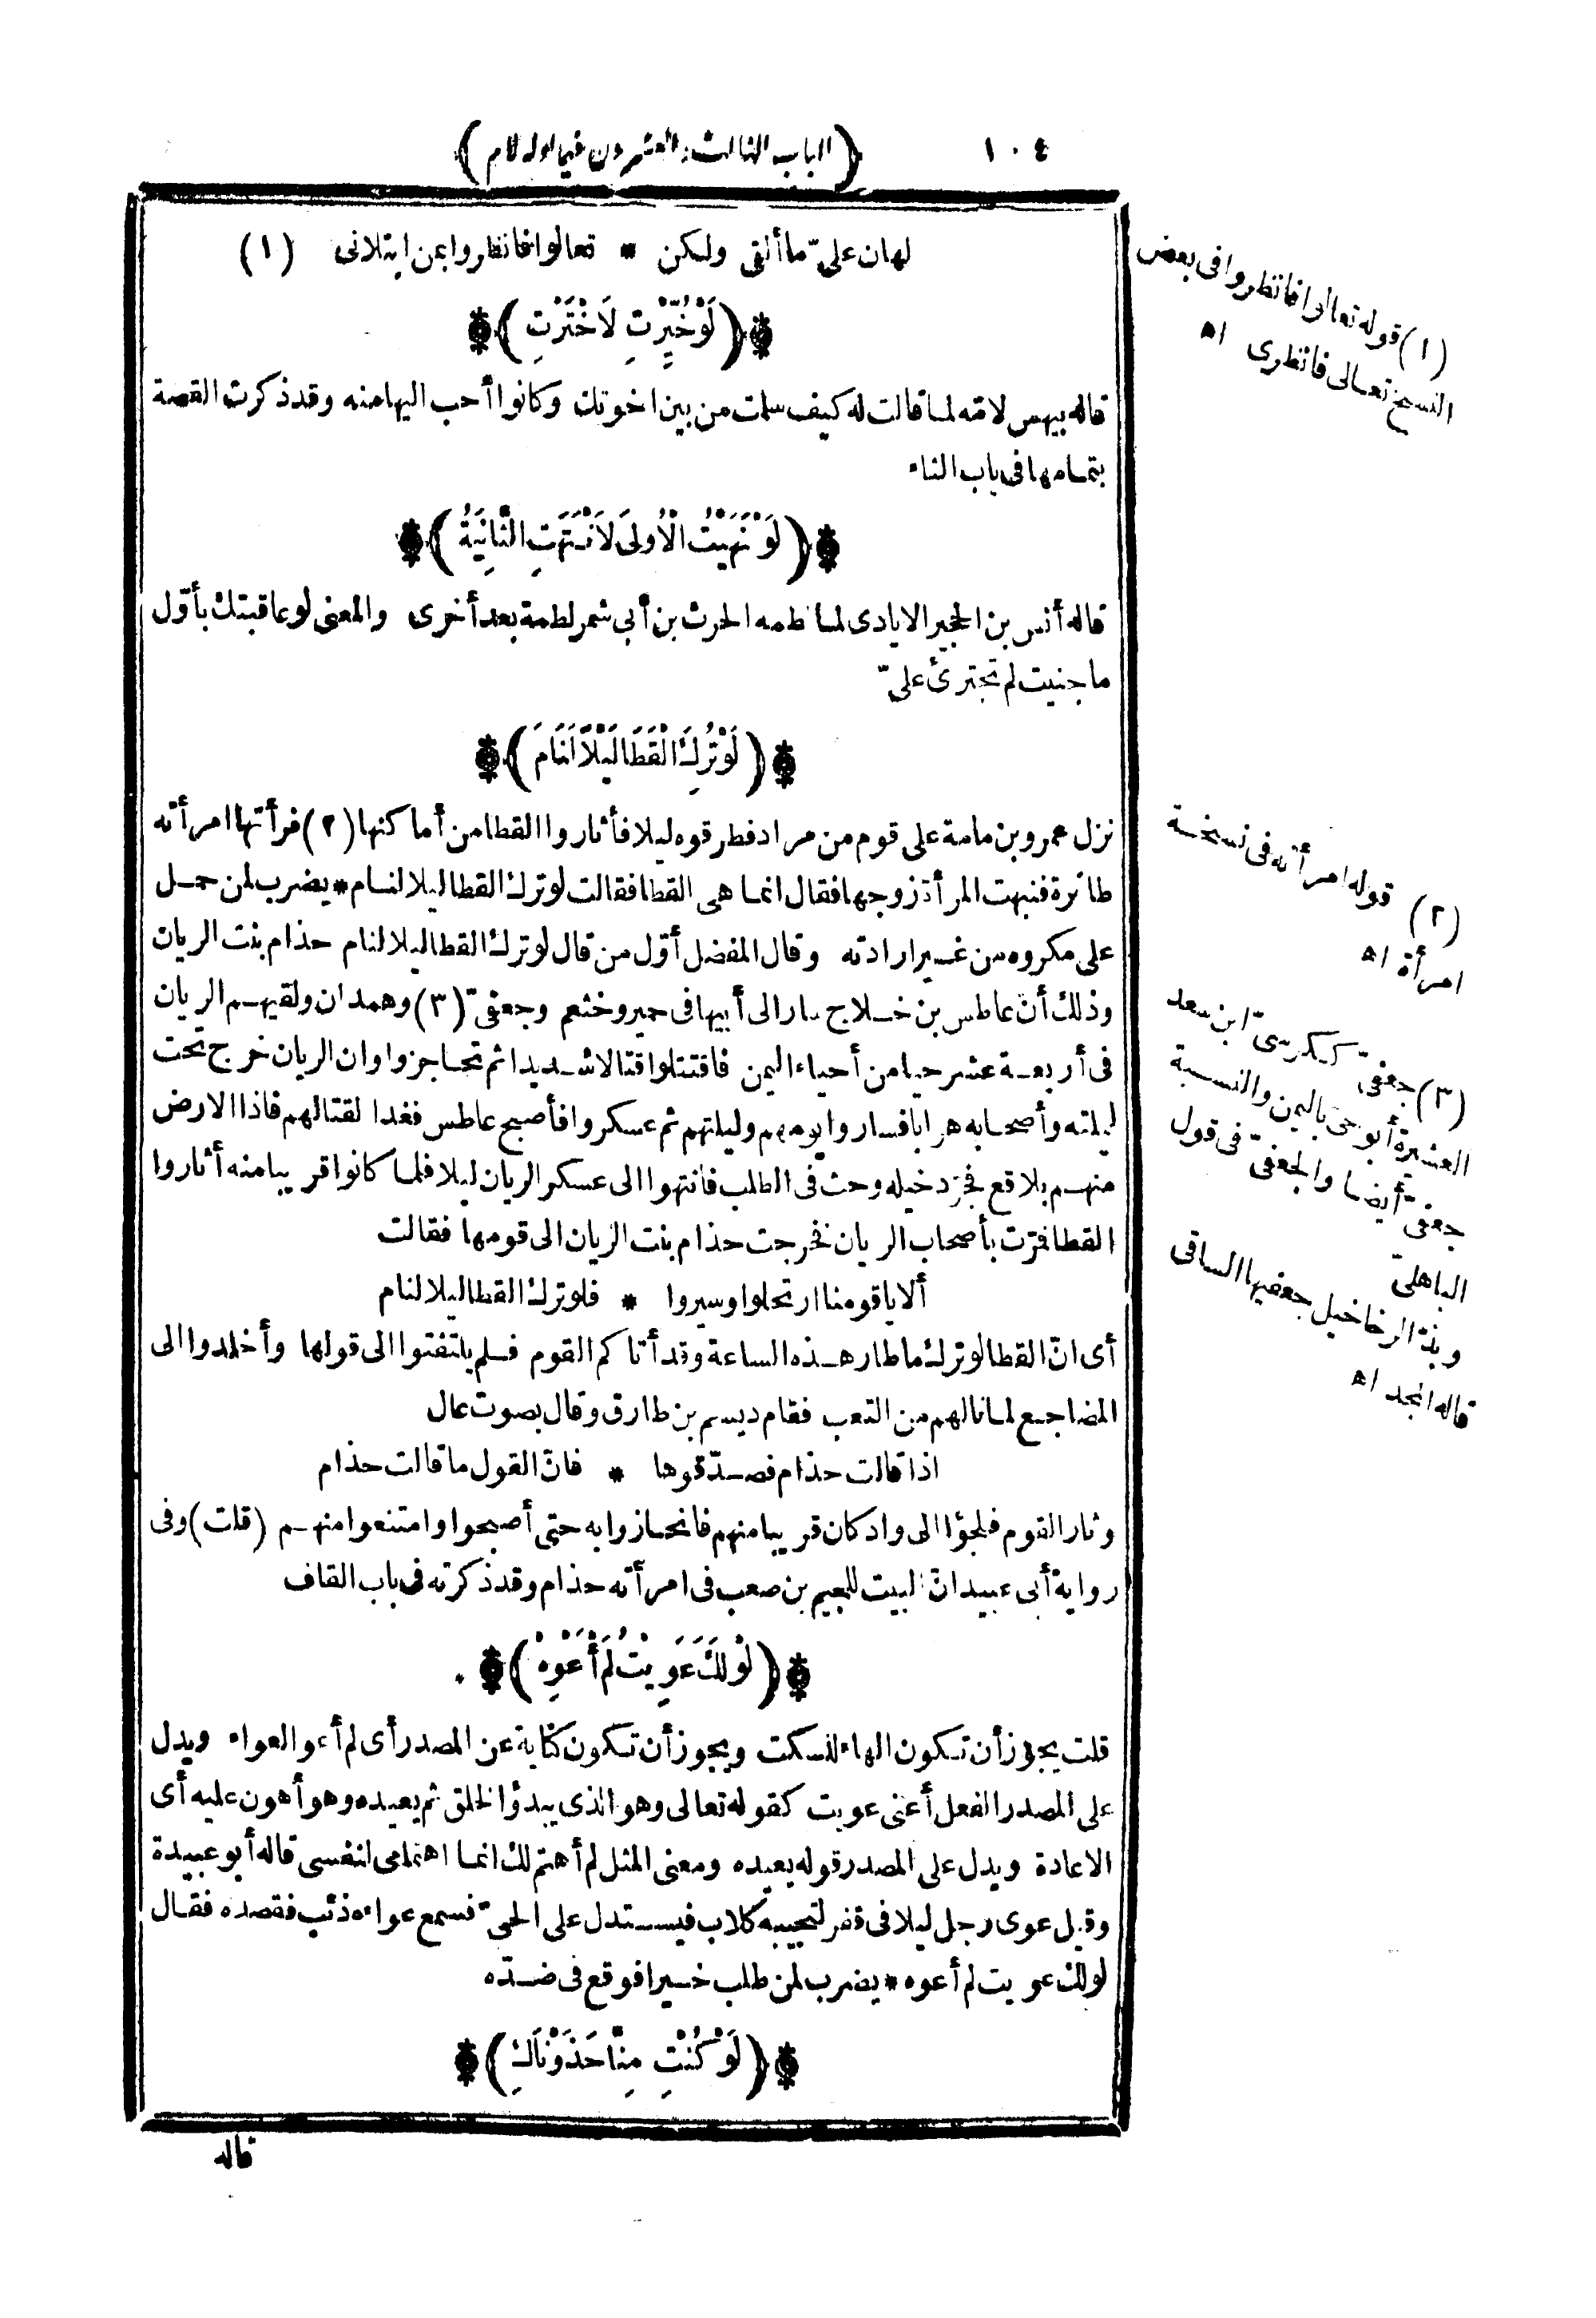 ١٠٤
(الباب الثالث والعشرون فيما اوله لام)
لهان علىّ ما ألقى ولكن * تعالوا فانظروا بمن ابتلانى (١)
(لَوْ خُيِّرْتِ لَاخْتَرْتِ)
قاله بيهس لامّه لما قالت له كيف سلمت من بين اخوتك وكانوا أحب اليها منه وقد ذكرت القصة
بتمامها فى باب الثاء
(لَوْ نَهَيْتُ الْأُولَى لَانْتَهَتِ الثَّانِيَةُ)
قاله أنس بن الحجير الايادى لما لطمه الحرث بن أبى شمر لطمة بعد أخرى والمعنى لو عاقبتك بأوّل
ما جنيت لم تجترئ علىّ
(لَوْ تُرِكَ الْقَطَا لَيْلًا لَنَامَ)
نزل عمرو بن مامة على قوم من مراد فطرقوه ليلا فأثاروا القطا من أماكنها (٢) فرأتها امرأته
طائرة فنبهت المرأة زوجها فقال انما هى القطا فقالت لو ترك القطا ليلا لنام * يضرب لمن حمل
على مكروه من غير ارادته وقال المفضل أوّل من قال لو ترك القطا ليلا لنام حذام بنت الريان
وذلك أنّ عاطس بن خلاج سار الى أبيها فى حمير وخثعم وجعفىّ (٣) وهمدان ولقيهم الريان
فى أربعة عشر حيا من أحياء اليمن فاقتتلوا قتالا شديدا ثم تحاجزوا وان الريان خرج تحت
ليلته وأصحابه هرابا فساروا يومهم وليلتهم ثم عسكروا فأصبح عاطس فغدا لقتالهم فاذا الارض
منهم بلاقع فجرّد خيله وحث فى الطلب فانتهوا الى عسكر الريان ليلا فلما كانوا قريبا منه أثاروا
القطا فمرّت بأصحاب الريان فخرجت حذام بنت الريان الى قومها فقالت
ألا ياقومنا ارتحلوا وسيروا * فلو ترك القطا ليلا لنام
أى انّ القطا لو ترك ما طار هذه الساعة وقد أتاكم القوم فلم يلتفتوا الى قولها وأخلدوا الى
المضاجع لما نالهم من التعب فقام ديسم بن طارق وقال بصوت عال
اذا قالت حذام فصدّقوها * فانّ القول ما قالت حذام
وثار القوم فلجؤا الى واد كان قريبا منهم فانحازوا به حتى أصبحوا وامتنعوا منهم (قلت) وفى
رواية أبى عبيد انّ البيت للجيم بن صعب فى امرأته حذام وقد ذكرته فى باب القاف
(لَوْ لَكَ عَوَيْتُ لَمْ أَعْوِهْ)
قلت يجوز أن تكون الهاء للسكت ويجوز أن تكون كناية عن المصدر أى لم أعو العواء ويدل
على المصدر الفعل أعنى عويت كقوله تعالى وهو الذى يبدؤا الخلق ثم يعيده وهو أهون عليه أى
الاعادة ويدل على المصدر قوله يعيده ومعنى المثل لم أهتم لك انما اهتمامى لنفسى قاله أبو عبيدة
وقيل عوى رجل ليلا فى قفر لتجيبه كلاب فيستدل على الحىّ فسمع عواءه ذئب فقصده فقال
لو لك عويت لم أعوه * يضرب لمن طلب خيرا فوقع فى ضدّه
(لَوْ كُنْتِ مِنَّا حَذَوْنَاكِ)
قاله
(١) قوله تعالوا فانظروا فى بعض
النسخ تعالى فانظرى اه
(٢) قوله امرأته فى نسخة
امرأة اه
(٣) جعفىّ ككرسىّ ابن سعد
العشيرة أبو حىّ باليمن والنسبة
جعفىّ أيضا والجعفىّ فى قول
الباهلىّ
وبذّ الرخاخيل جعفيها الساقى
قاله المجد اه